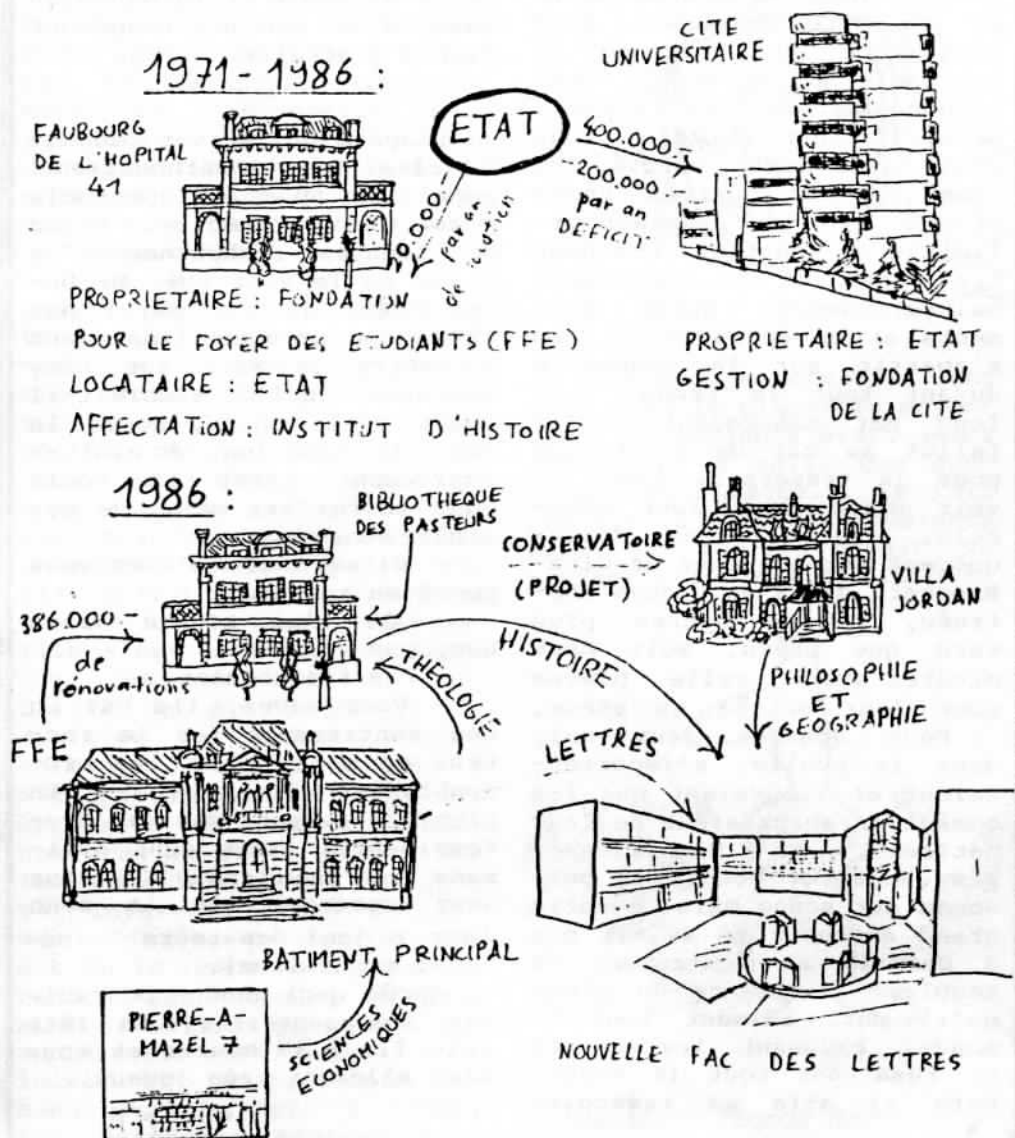 1971-1986 :
FAUBOURG
DE L'HOPITAL
41
ETAT
CITE
UNIVERSITAIRE
400.000.-
200.000.-
par an
DEFICIT
par an
de soutien
PROPRIETAIRE : FONDATION
POUR LE FOYER DES ETUDIANTS (FFE)
LOCATAIRE : ETAT
AFFECTATION : INSTITUT D'HISTOIRE
PROPRIETAIRE : ETAT
GESTION : FONDATION
DE LA CITE
1986 :
BIBLIOTHEQUE
DES PASTEURS
386.000.-
de
rénovations
FFE
THEOLOGIE
CONSERVATOIRE
(PROJET)
VILLA
JORDAN
HISTOIRE
LETTRES
PHILOSOPHIE
ET
GEOGRAPHIE
BATIMENT PRINCIPAL
PIERRE-A-
MAZEL 7
SCIENCES
ECONOMIQUES
NOUVELLE FAC DES LETTRES